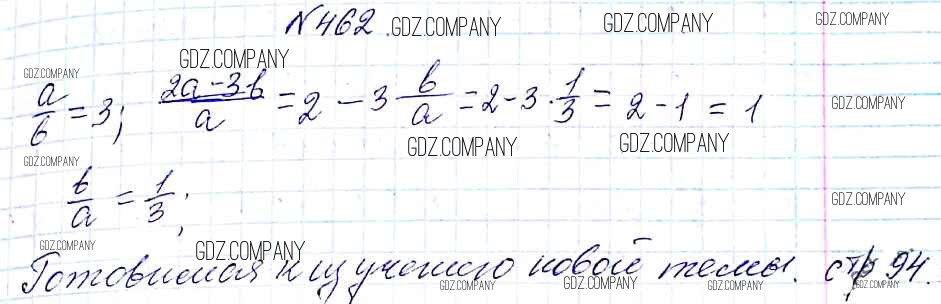 №462. GDZ.COMPANY GDZ.COMPANY GDZ.COMPANY
GDZ.COMPANY GDZ.COMPANY
a/b = 3; (2a-3b)/a = 2 - 3 b/a = 2 - 3 · 1/3 = 2 - 1 = 1
GDZ.COMPANY
GDZ.COMPANY GDZ.COMPANY GDZ.COMPANY
b/a = 1/3;
GDZ.COMPANY
GDZ.COMPANY GDZ.COMPANY
Готовимся к изучению новой темы. стр 94.
GDZ.COMPANY GDZ.COMPANY GDZ.COMPANY GDZ.COMPANY